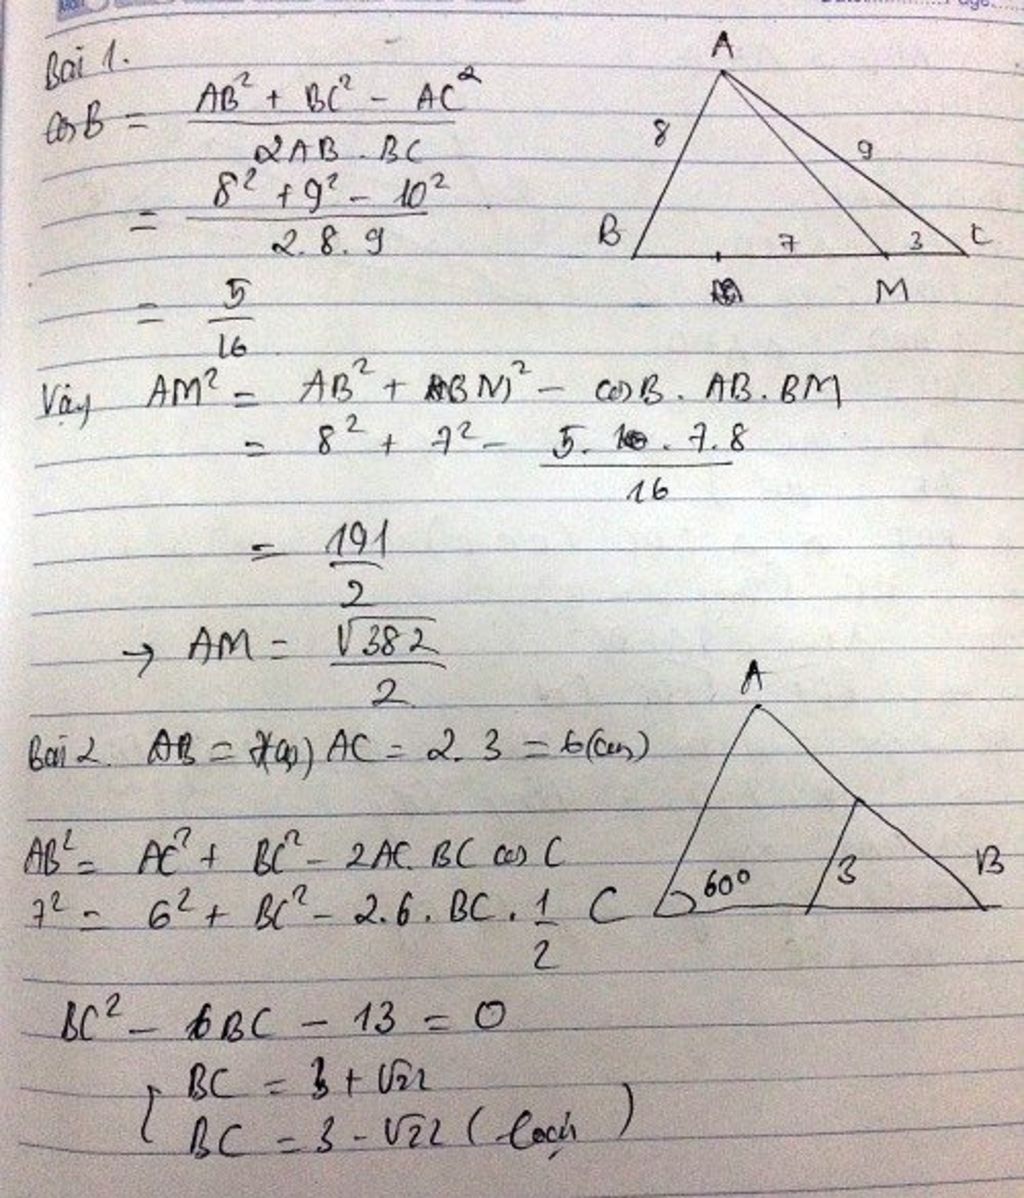 Bài 1.
A
cos B = (AB² + BC² - AC²) / (2AB . BC)
8
9
= (8² + 9² - 10²) / (2. 8. 9)
B
7
3
C
M
= 5/16
Vậy AM² = AB² + BM² - cosB . AB . BM
= 8² + 7² - (5. . 7. 8) / 16
= 191/2
→ AM = √382 / 2
A
Bài 2. AB = 7(cm) AC = 2. 3 = 6(cm)
AB² = AC² + BC² - 2AC. BC cos C
60°
3
B
7² = 6² + BC² - 2.6. BC. 1/2
C
BC² - 6BC - 13 = 0
[ BC = 3 + √22
BC = 3 - √22 ( loại )